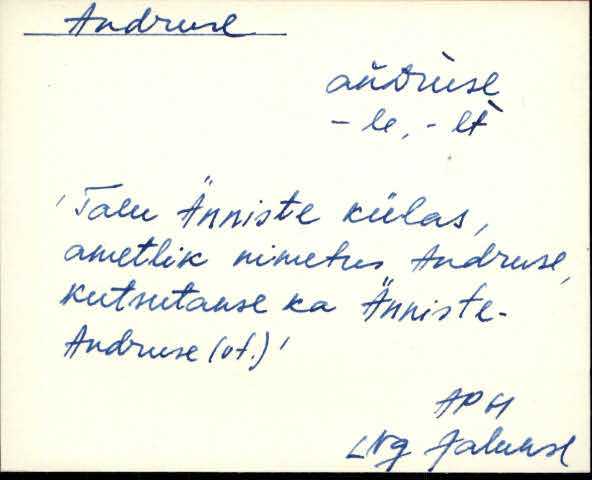 Andruse
añdruse
- le, - lt
'Talu Änniste külas,
ametlik nimetus Andruse,
kutsutakse ka Änniste-
Andruse (vt.)'
APH